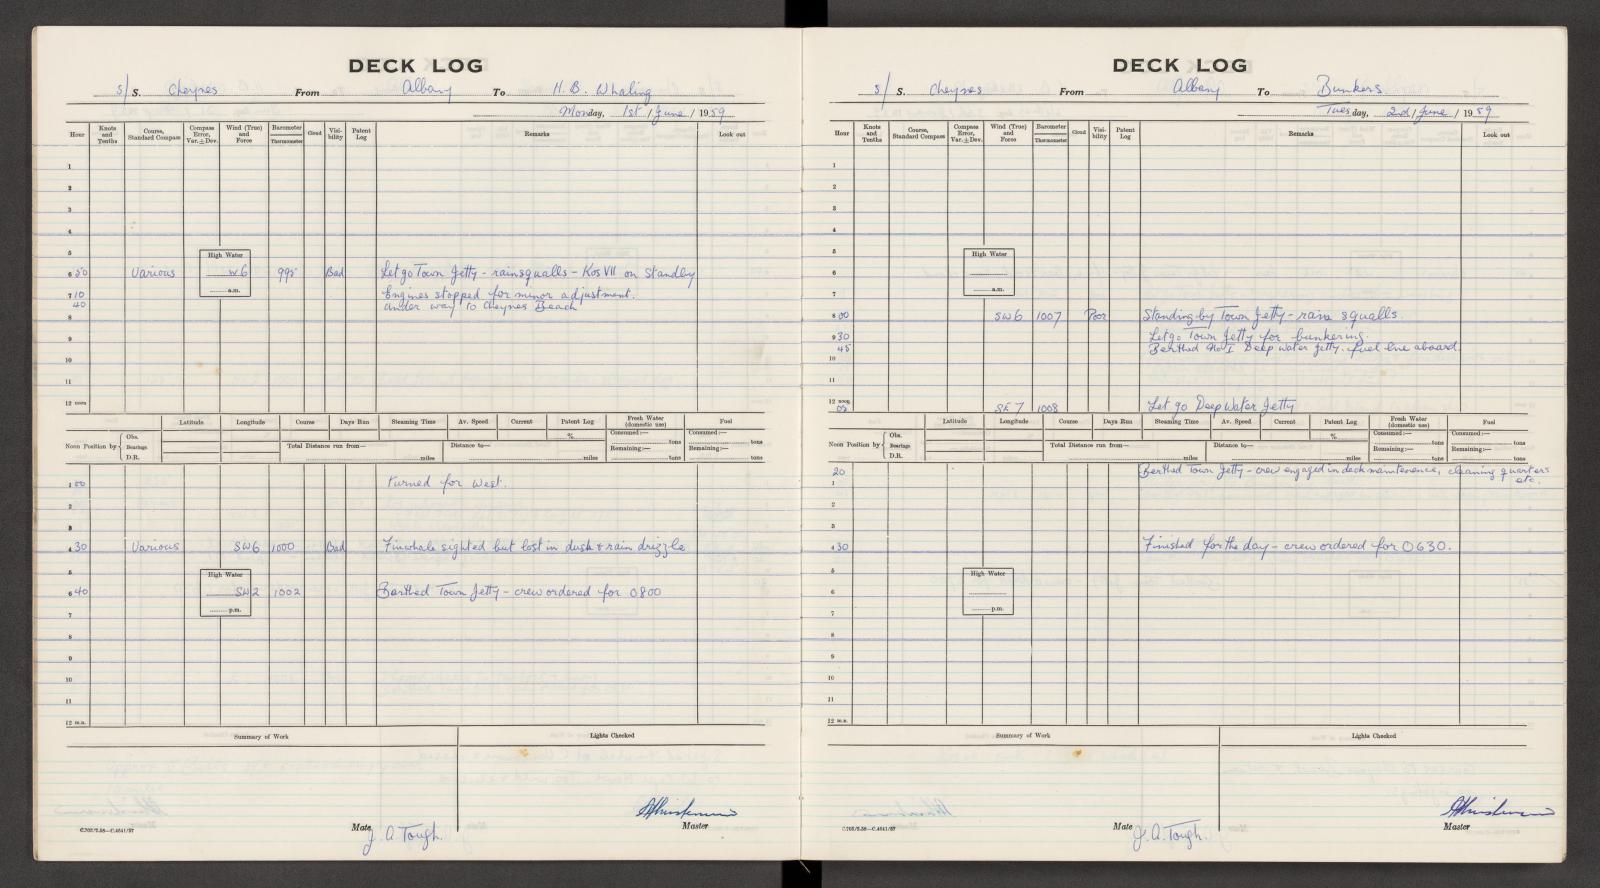 DECK LOG
S/S. Cheynes From Albany To H. B. Whaling
Monday, 1st / June / 1959
Hour Knots and Tenths Course, Standard Compass Compass Error, Var. ± Dev. Wind (True) and Force Barometer Thermometer Cloud Visibility Patent Log Remarks Look out
1
2
3
4
5 High Water
6 50 Various W6 998 Bad Let go Town Jetty - rainsqualls - Kos VII on standby
a.m.
7 10 Engines stopped for minor adjustment.
40 Under way to Cheynes Beach
8
9
10
11
12 noon
Latitude Longitude Course Days Run Steaming Time Av. Speed Current Patent Log Fresh Water (domestic use) Fuel
Noon Position by Obs. Bearings D.R. Total Distance run from— miles Distance to— miles % Consumed:— tons Remaining:— tons Consumed:— tons Remaining:— tons
1 00 Turned for West.
2
3
4 30 Various SW6 1000 Bad Finwhale sighted but lost in dusk & rain drizzle
5 High Water
6 40 SW2 1002 Berthed Town Jetty - crew ordered for 0800
p.m.
7
8
9
10
11
12 m.n.
Summary of Work Lights Checked
C.702/2.58—C.4641/97
Mate J. A. Tough. Master
DECK LOG
S/S. Cheynes From Albany To Bunkers
Tuesday, 2nd / June / 1959
Hour Knots and Tenths Course, Standard Compass Compass Error, Var. ± Dev. Wind (True) and Force Barometer Thermometer Cloud Visibility Patent Log Remarks Look out
1
2
3
4
5 High Water
6
a.m.
7
8 00 SW6 1007 Poor Standing by Town Jetty - rain squalls.
9 30 Let go Town Jetty for bunkering.
45 Berthed No I Deep Water Jetty. fuel line aboard.
10
11
12 noon
SE 7 1008 Let go Deep Water Jetty
Latitude Longitude Course Days Run Steaming Time Av. Speed Current Patent Log Fresh Water (domestic use) Fuel
Noon Position by Obs. Bearings D.R. Total Distance run from— miles Distance to— miles % Consumed:— tons Remaining:— tons Consumed:— tons Remaining:— tons
20 Berthed Town Jetty - crew engaged in deck maintenence, cleaning quarters
1 etc.
2
3
4 30 Finished for the day - crew ordered for 0630.
5 High Water
6
p.m.
7
8
9
10
11
12 m.n.
Summary of Work Lights Checked
C.702/2.58—C.4641/97
Mate J. A. Tough. Master